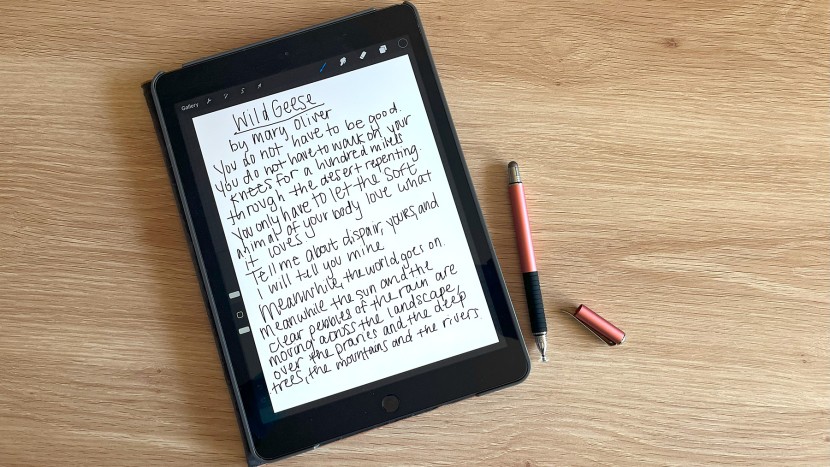 Gallery
Wild Geese
by Mary Oliver
You do not have to be good.
You do not have to walk on your
knees for a hundred miles
through the desert repenting.
You only have to let the soft
animal of your body love what
it loves.
Tell me about dispair, yours, and
I will tell you mine
Meanwhile, the world goes on.
meanwhile the sun and the
clear pebbles of the rain are
moving across the landscape,
over the praries and the deep
trees, the mountains and the rivers.